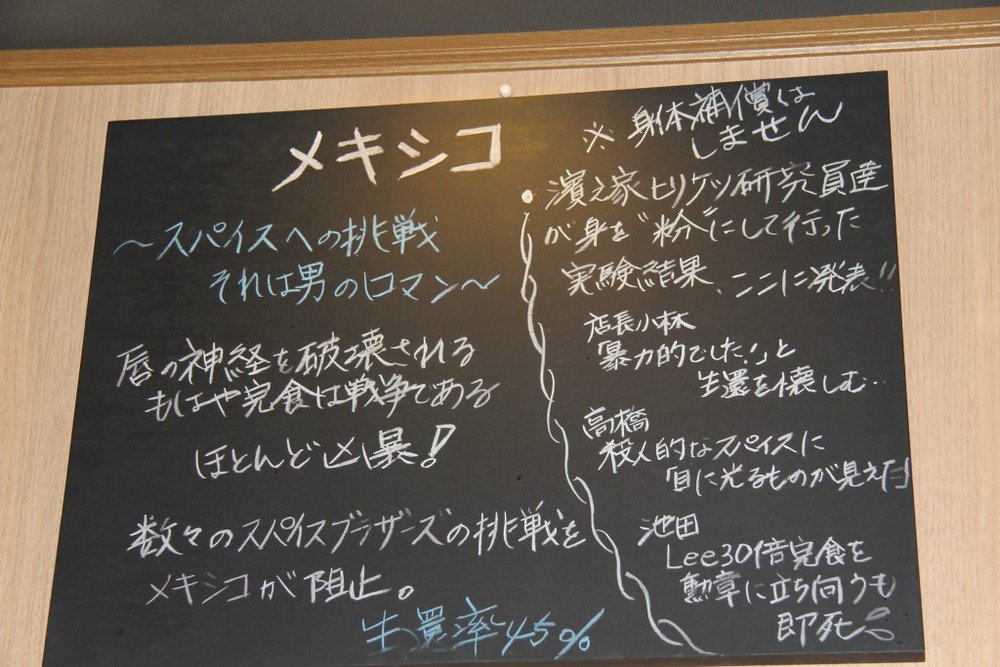 メキシコ
～スパイスへの挑戦
それは男のロマン～
唇の神経を破壊される
もはや完食は戦争である
ほとんど凶暴!
数々のスパイスブラザーズの挑戦を
メキシコが阻止。
生還率45%
※身体補償は
しません
濱之家ヒリケツ研究員達
が身を"粉"にして行った
実験結果、ここに発表!!
店長小林
「暴力的でした!」と
生還を懐しむ…
高橋
殺人的なスパイスに
「目に光るものが見えた」
池田
Lee30倍完食を
勲章に立ち向うも
即死。